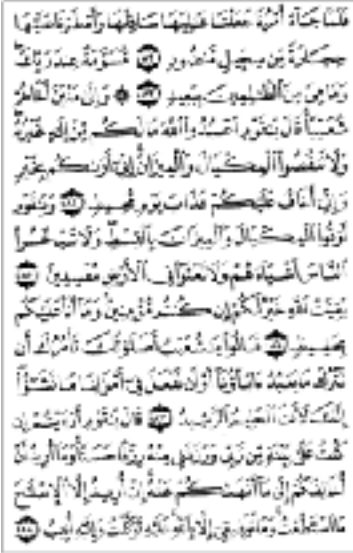 فَلَمَّا جَاءَ أَمْرُنَا جَعَلْنَا عَالِيَهَا سَافِلَهَا وَأَمْطَرْنَا عَلَيْهَا
حِجَارَةً مِّن سِجِّيلٍ مَّنضُودٍ ٨٢ مُّسَوَّمَةً عِندَ رَبِّكَ
وَمَا هِيَ مِنَ الظَّالِمِينَ بِبَعِيدٍ ٨٣ ۞ وَإِلَىٰ مَدْيَنَ أَخَاهُمْ
شُعَيْبًا قَالَ يَا قَوْمِ اعْبُدُوا اللَّهَ مَا لَكُم مِّنْ إِلَٰهٍ غَيْرُهُ
وَلَا تَنقُصُوا الْمِكْيَالَ وَالْمِيزَانَ إِنِّي أَرَاكُم بِخَيْرٍ
وَإِنِّي أَخَافُ عَلَيْكُمْ عَذَابَ يَوْمٍ مُّحِيطٍ ٨٤ وَيَا قَوْمِ
أَوْفُوا الْمِكْيَالَ وَالْمِيزَانَ بِالْقِسْطِ وَلَا تَبْخَسُوا
النَّاسَ أَشْيَاءَهُمْ وَلَا تَعْثَوْا فِي الْأَرْضِ مُفْسِدِينَ ٨٥
بَقِيَّتُ اللَّهِ خَيْرٌ لَّكُمْ إِن كُنتُم مُّؤْمِنِينَ وَمَا أَنَا عَلَيْكُم
بِحَفِيظٍ ٨٦ قَالُوا يَا شُعَيْبُ أَصَلَاتُكَ تَأْمُرُكَ أَن
نَّتْرُكَ مَا يَعْبُدُ آبَاؤُنَا أَوْ أَن نَّفْعَلَ فِي أَمْوَالِنَا مَا نَشَاءُ
إِنَّكَ لَأَنتَ الْحَلِيمُ الرَّشِيدُ ٨٧ قَالَ يَا قَوْمِ أَرَأَيْتُمْ إِن
كُنتُ عَلَىٰ بَيِّنَةٍ مِّن رَّبِّي وَرَزَقَنِي مِنْهُ رِزْقًا حَسَنًا وَمَا أُرِيدُ أَنْ
أُخَالِفَكُمْ إِلَىٰ مَا أَنْهَاكُمْ عَنْهُ إِنْ أُرِيدُ إِلَّا الْإِصْلَاحَ
مَا اسْتَطَعْتُ وَمَا تَوْفِيقِي إِلَّا بِاللَّهِ عَلَيْهِ تَوَكَّلْتُ وَإِلَيْهِ أُنِيبُ ٨٨